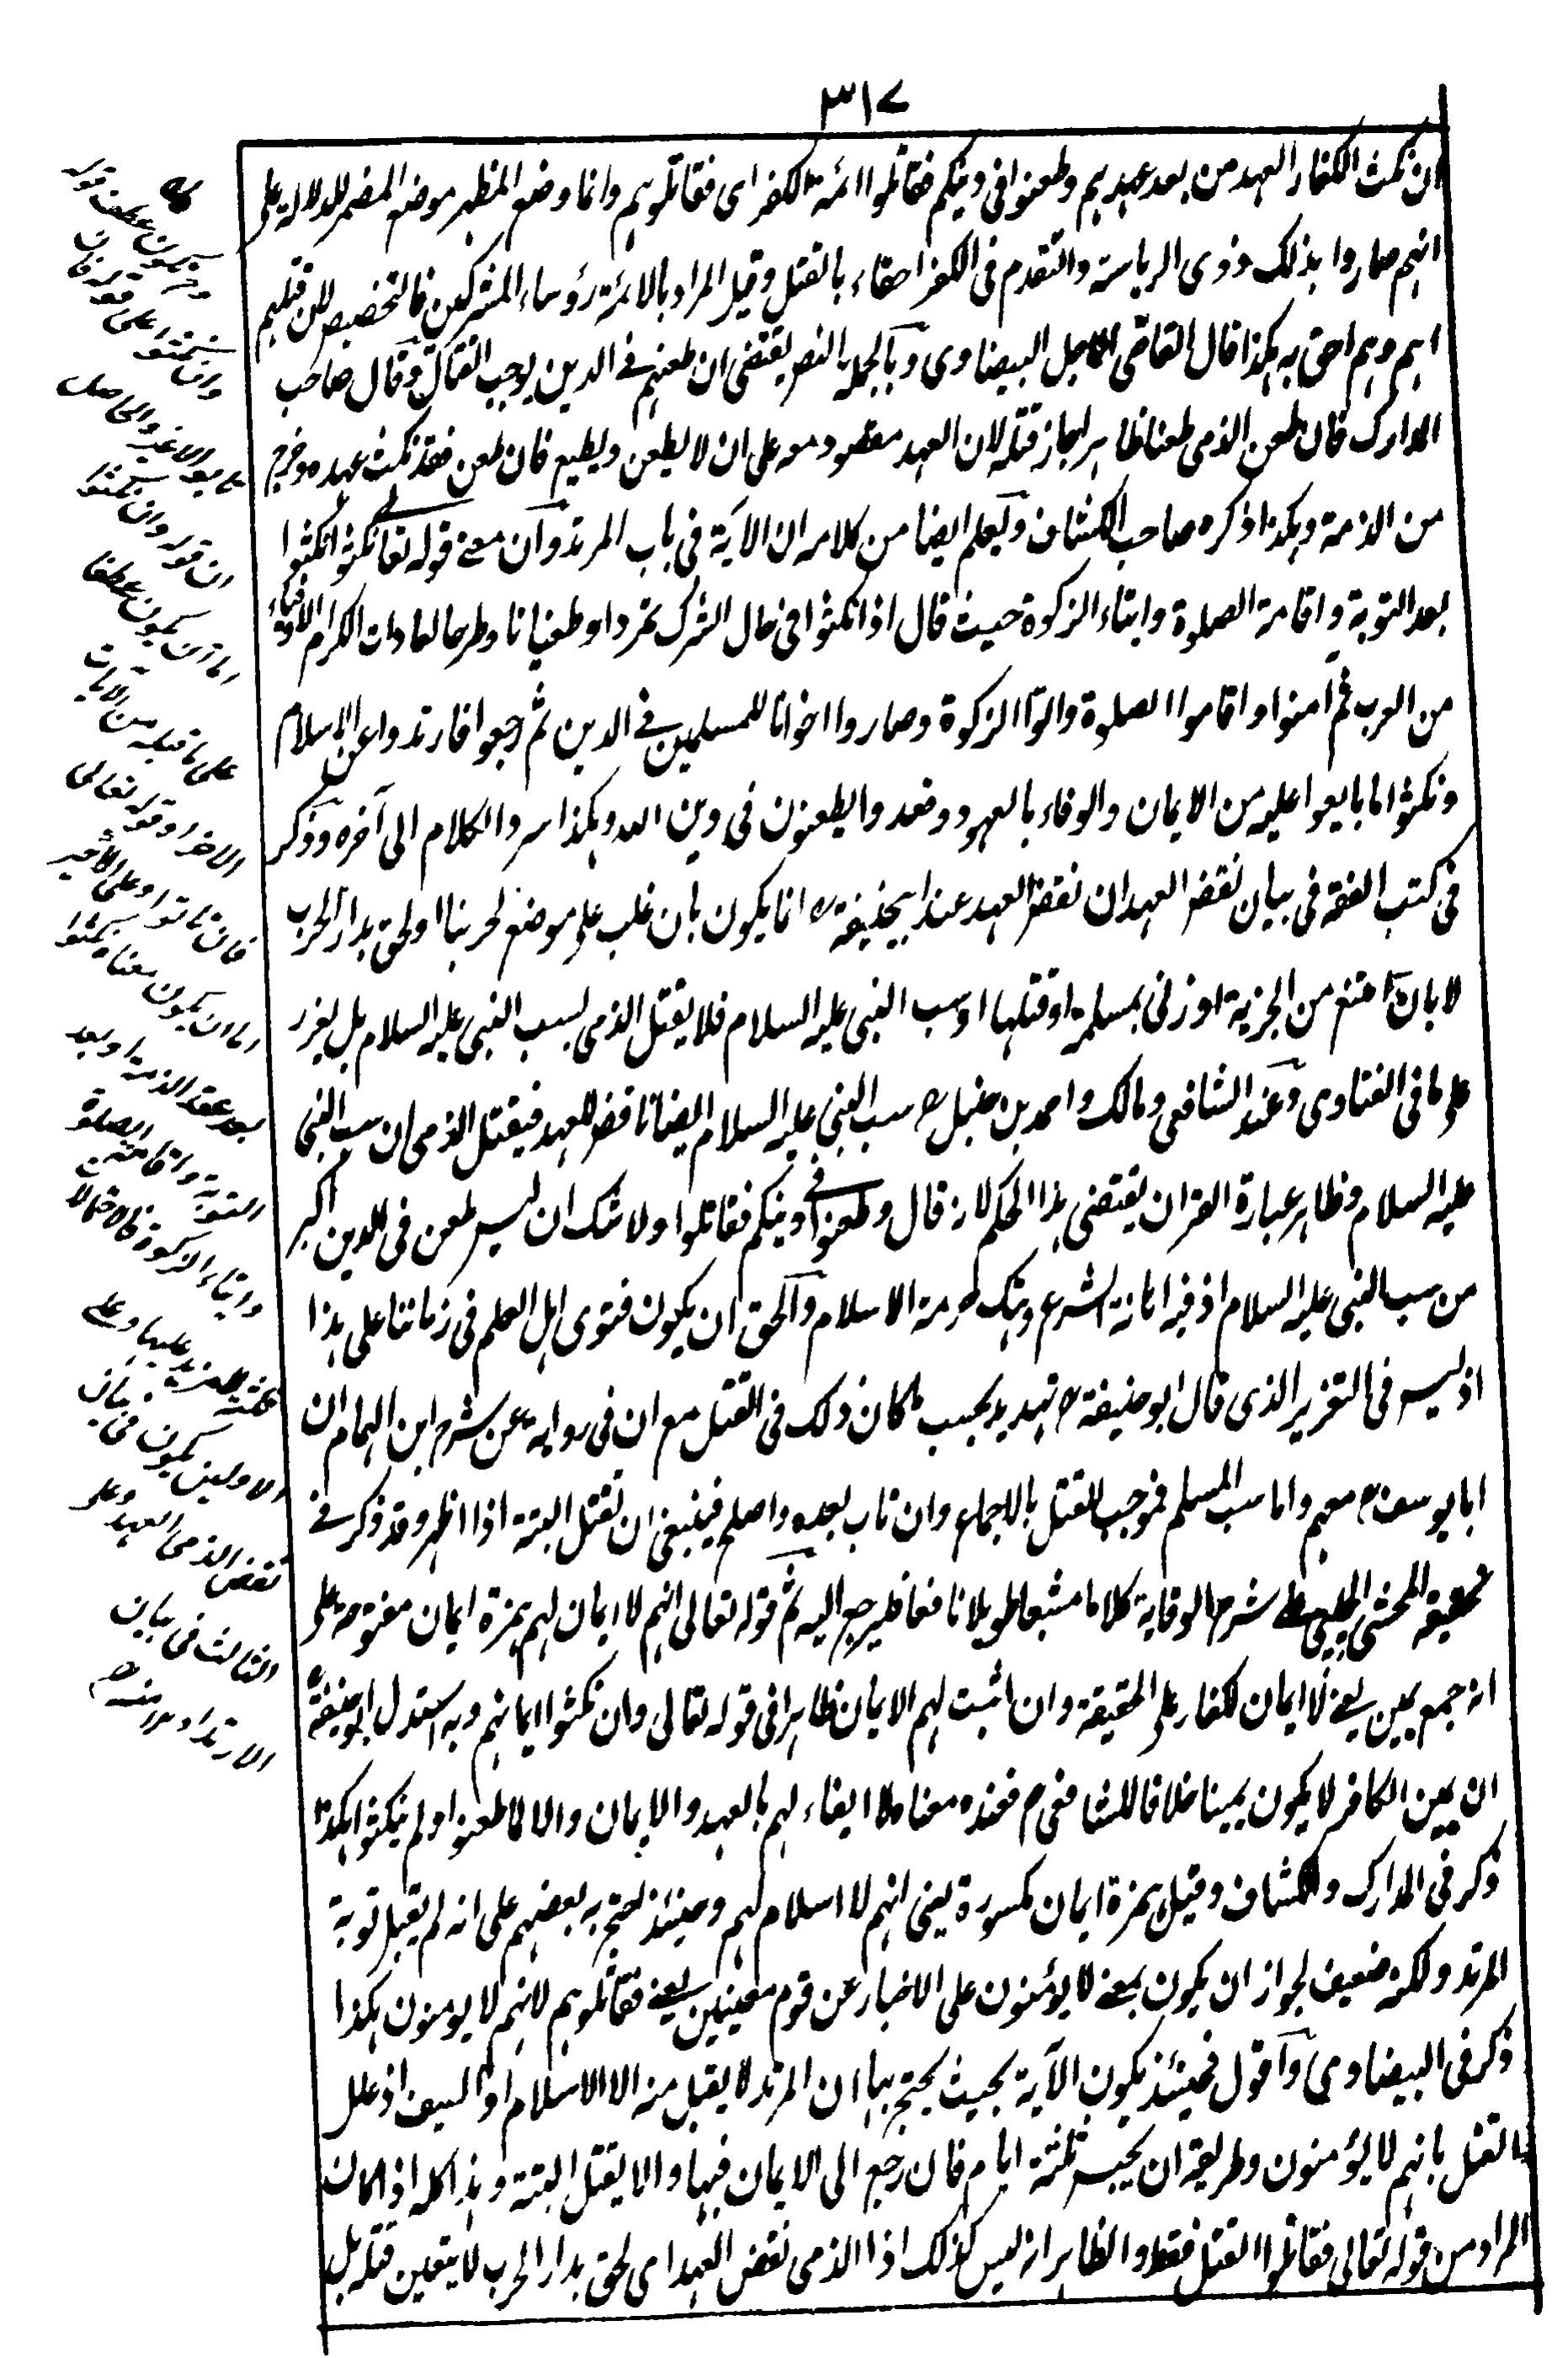 ٣١٧
ان نكث الكفار العهد من بعد عهدهم وطعنوا فى دينكم فقاتلوا ائمة الكفر اى فقاتلوهم وانما وضع المظهر موضع المضمر للدلالة على
انهم صاروا بذلك ذوى الرياسة والتقدم فى الكفر احقاء بالقتل وقيل المراد بالائمة رؤساء المشركين فالتخصيص لان قتلهم
اهم وهم احق به هكذا قال القاضى الاجل البيضاوى وبالجملة النص يقتضى ان طعنهم فى الدين يوجب القتال وقال صاحب
المدارك فان طعن الذمى طعنا ظاهرا جاز قتله لان العهد معقود معه على ان لا يطعن ويطيع فان طعن فقد نكث عهده وخرج
من الذمة وهكذا ذكره صاحب الكشاف ويعلم ايضا من كلامه ان الآية فى باب المرتد وان معنى قوله تعالى نكثوا نكثوا
بعد التوبة واقامة الصلوة وايتاء الزكوة حيث قال اذا نكثوا فى حال الشرك تمردا وطغيانا وطرحا لعادات الكرام الاوفياء
من العرب ثم آمنوا واقاموا الصلوة واتوا الزكوة وصاروا اخوانا للمسلمين فى الدين ثم رجعوا فارتدوا عن الاسلام
ونكثوا ما بايعوا عليه من الايمان والوفاء بالعهود وقعدوا يطعنون فى دين الله وهكذا سرد الكلام الى آخره وذكر
فى كتب الفقه فى بيان نقض العهد ان نقض العهد عند ابيحنيفة رح انما يكون بان غلب على موضع لحربنا او لحق بدار الحرب
لا بان امتنع من الجزية او زنى بمسلمة او قتلها او سب النبى عليه السلام فلا يقتل الذمى بسب النبى عليه السلام بل يعزر
على ما فى الفتاوى وعند الشافعى ومالك واحمد بن حنبل رح سب النبى عليه السلام ايضا ناقض للعهد فيقتل الذمى ان سب النبى
عليه السلام وظاهر عبارة القران يقتضى هذا الحكم لانه قال وطعنوا فى دينكم فقاتلوا ولا شك ان ليس طعن فى الدين اكبر
من سب النبى عليه السلام اذ فيه اهانة الشرع وهتك حرمة الاسلام والحق ان يكون فتوى اهل العلم فى زماننا على هذا
اذ ليس فى التعزير الذى قال ابو حنيفة رح تهديد بحسب ما كان ذلك فى القتل مع ان فى رواية عن شرح ابن الهمام ان
ابا يوسف رح معهم واما سب المسلم فموجب للقتل بالاجماع وان تاب بعده واصلح فينبغى ان تقتل البتة اذا اظهر وقد ذكر فى
تحقيقه المحشى الچلپى على شرح الوقاية كلاما مشبعا طويلا نافعا فليرجع اليه ثم قوله تعالى انهم لا ايمان لهم بهمزة ايمان مفتوحة على
انه جمع يمين يعنى لا ايمان لكفار على الحقيقة وان اثبت لهم الايمان ظاهرا فى قوله تعالى وان نكثوا ايمانهم وبه استدل ابو حنيفة رح
ان يمين الكافر لا يكون يمينا خلافا للشافعى رح فعنده معناه لا ايفاء لهم بالعهد والايمان والا لما طعنوا ولم ينكثوا هكذا
ذكر فى المدارك والكشاف وقيل بهمزة ايمان مكسورة يعنى انهم لا اسلام لهم وحينئذ يحتج به بعضهم على انه لم يقبل توبة
المرتد ولكنه ضعيف لجواز ان يكون بمعنى لا يؤمنون على الاخبار عن قوم معينين يعنى فقاتلوهم لانهم لا يومنون هكذا
ذكر فى البيضاوى واقول فحينئذ يكون الآية بحيث يحتج بها ان المرتد لا يقبل منه الا الاسلام او السيف اذ علل
القتل بانهم لا يؤمنون وطريقه ان يحبس ثلثة ايام فان رجع الى الايمان فبها والا يقتل البتة وهذا كله اذا كان
المراد من قوله تعالى فقاتلوا القتل فقط والظاهر انه ليس كذلك اذا الذمى نقض العهد اى لحق بدار الحرب لا يتعين قتله بل
وان نكثوا على قوله فان
هو الاخير والحاصل
ان قوله وان نكثوا
اما ان يكون عطفا
على ما قبله من الآيات
الاخر او قوله تعالى
فان تابوا وعلى الاخير
اما ان يكون معنا نكثوا
بعد عقد الذمة او بعد
التوبة واقامة الصلوة
وايتاء الزكوة
الاولين يكون فى بيان
نقض الذمى العهد وعلى
الثالث فى بيان